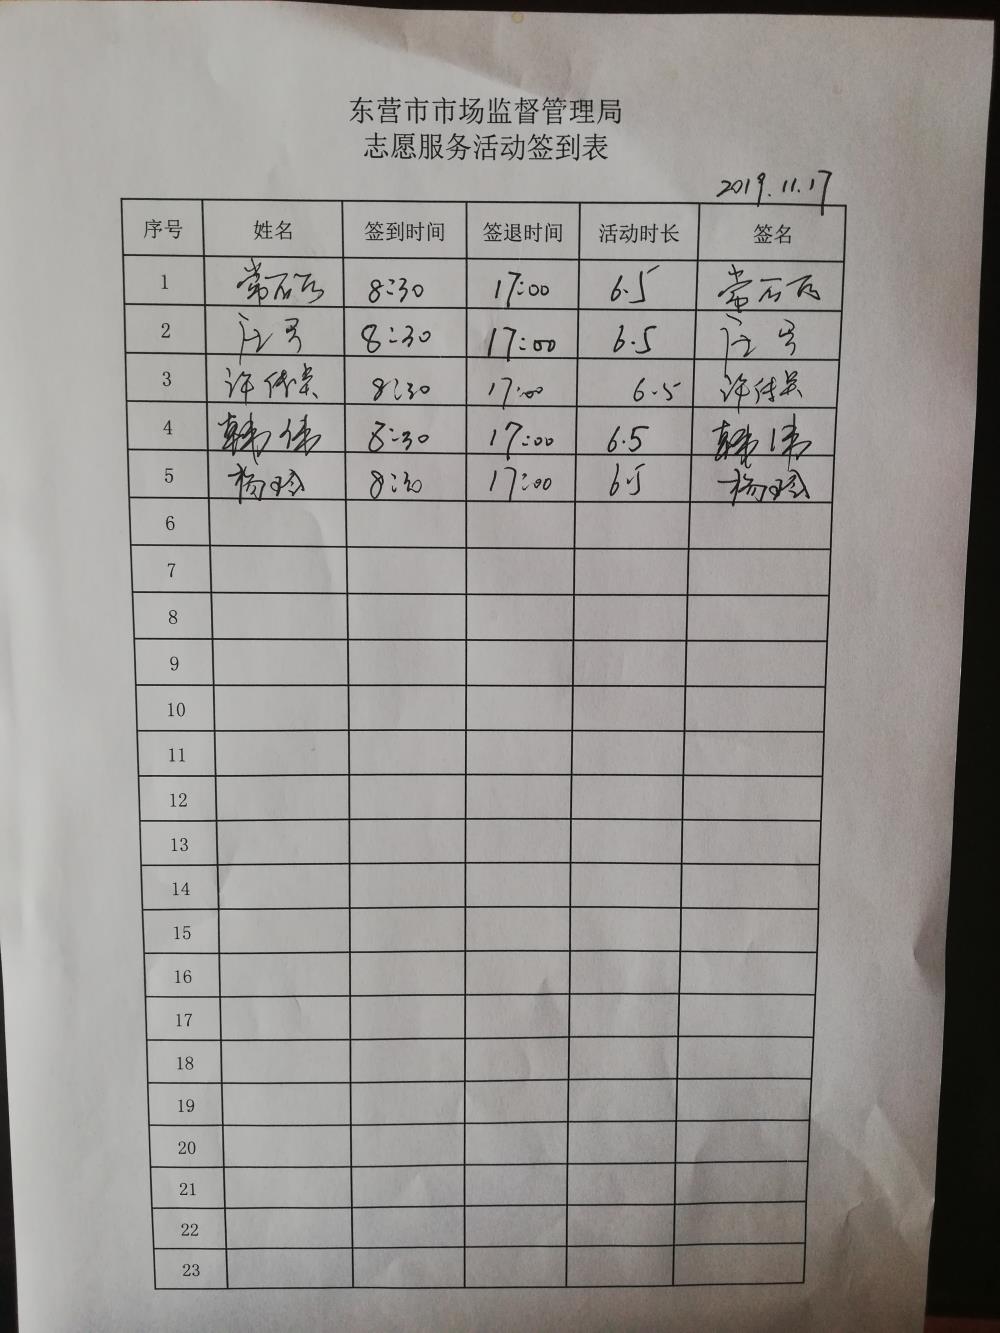 东营市市场监督管理局
志愿服务活动签到表
2019.11.17
序号 姓名 签到时间 签退时间 活动时长 签名
1 8:30 17:00 6.5
2 8:30 17:00 6.5
3 许传 8:30 17:00 6.5 许传
4 韩伟 8:30 17:00 6.5 韩伟
5 杨 8:30 17:00 6.5 杨
6
7
8
9
10
11
12
13
14
15
16
17
18
19
20
21
22
23